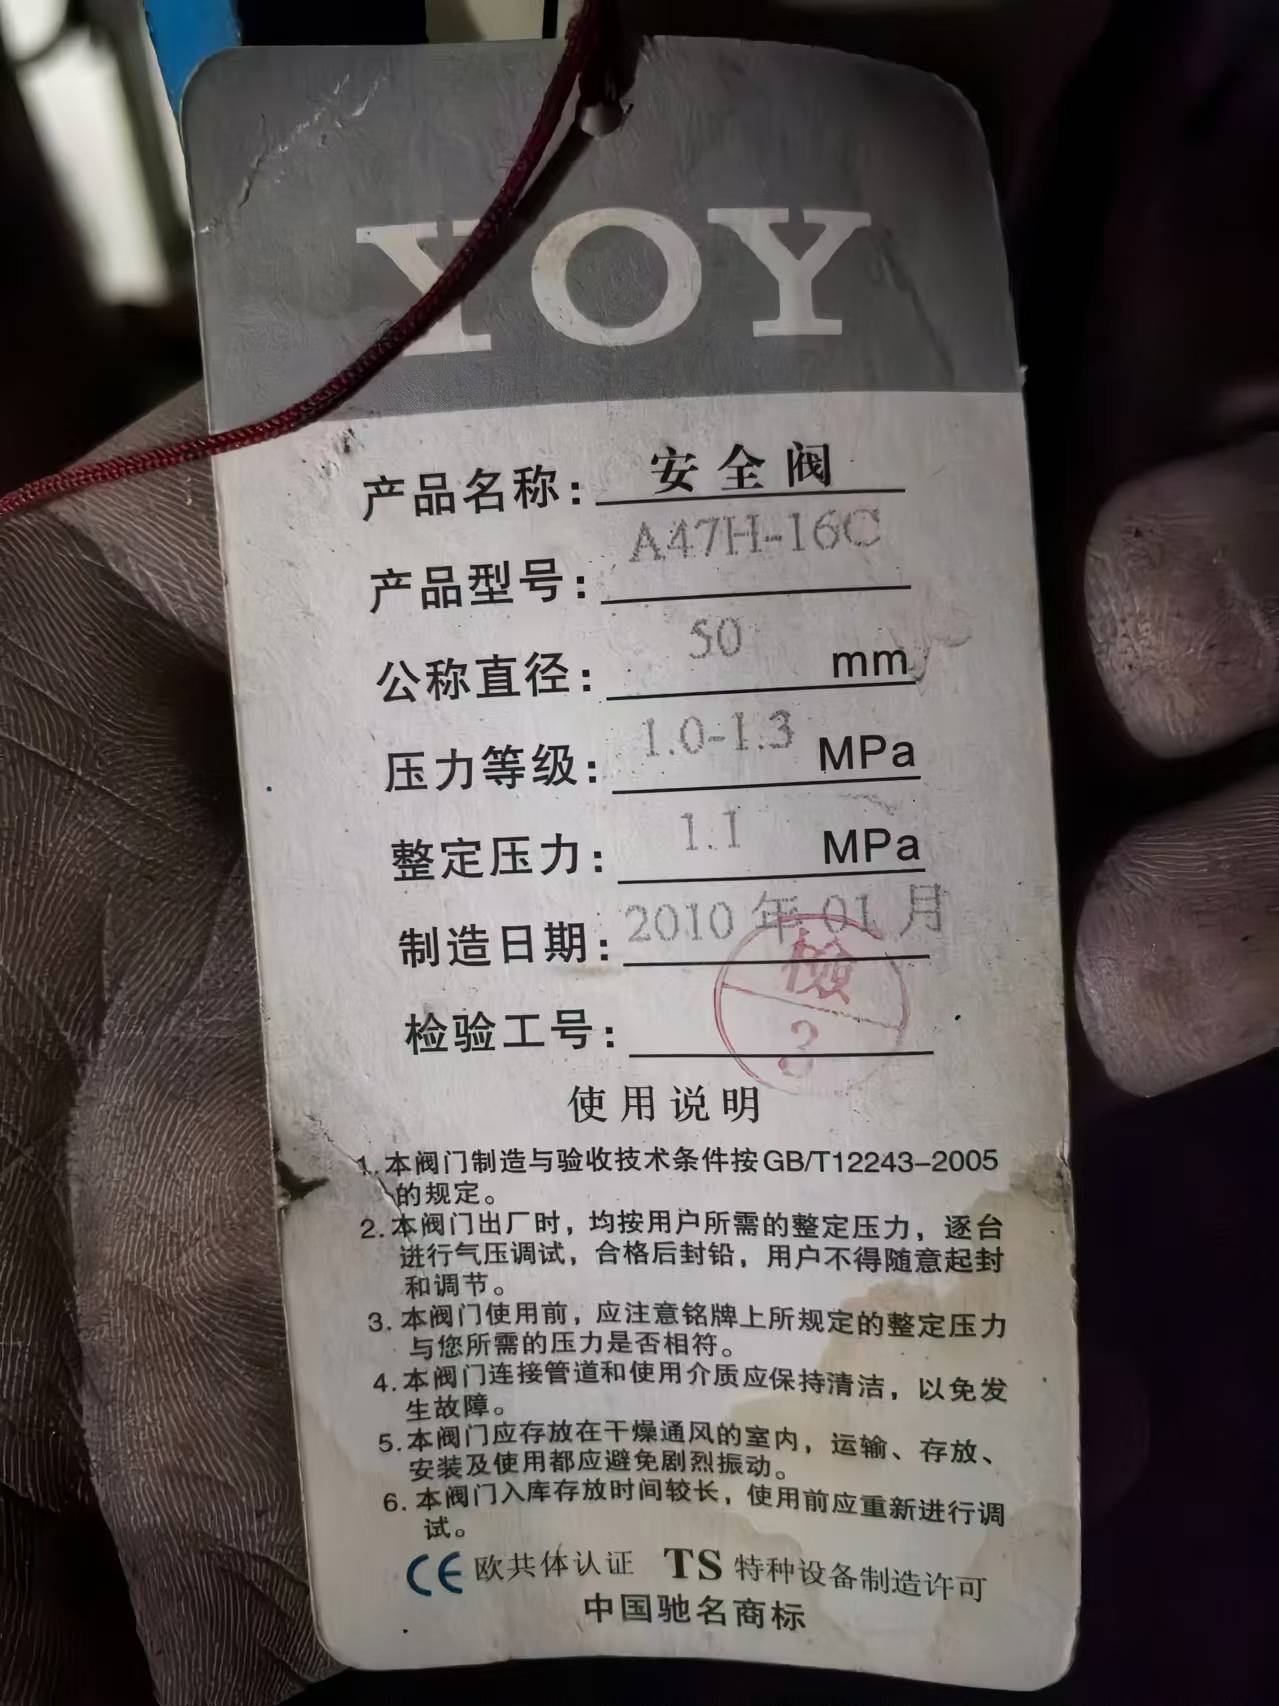 YOY
产品名称：安全阀
产品型号：A47H-16C
公称直径：50 mm
压力等级：1.0-1.3 MPa
整定压力：1.1 MPa
制造日期：2010年01月
检验工号：
檢
3
使用说明
1.本阀门制造与验收技术条件按GB/T12243-2005
的规定。
2.本阀门出厂时，均按用户所需的整定压力，逐台
进行气压调试，合格后封铅，用户不得随意起封
和调节。
3.本阀门使用前，应注意铭牌上所规定的整定压力
与您所需的压力是否相符。
4.本阀门连接管道和使用介质应保持清洁，以免发
生故障。
5.本阀门应存放在干燥通风的室内，运输、存放、
安装及使用都应避免剧烈振动。
6.本阀门入库存放时间较长，使用前应重新进行调
试。
CE 欧共体认证 TS 特种设备制造许可
中国驰名商标